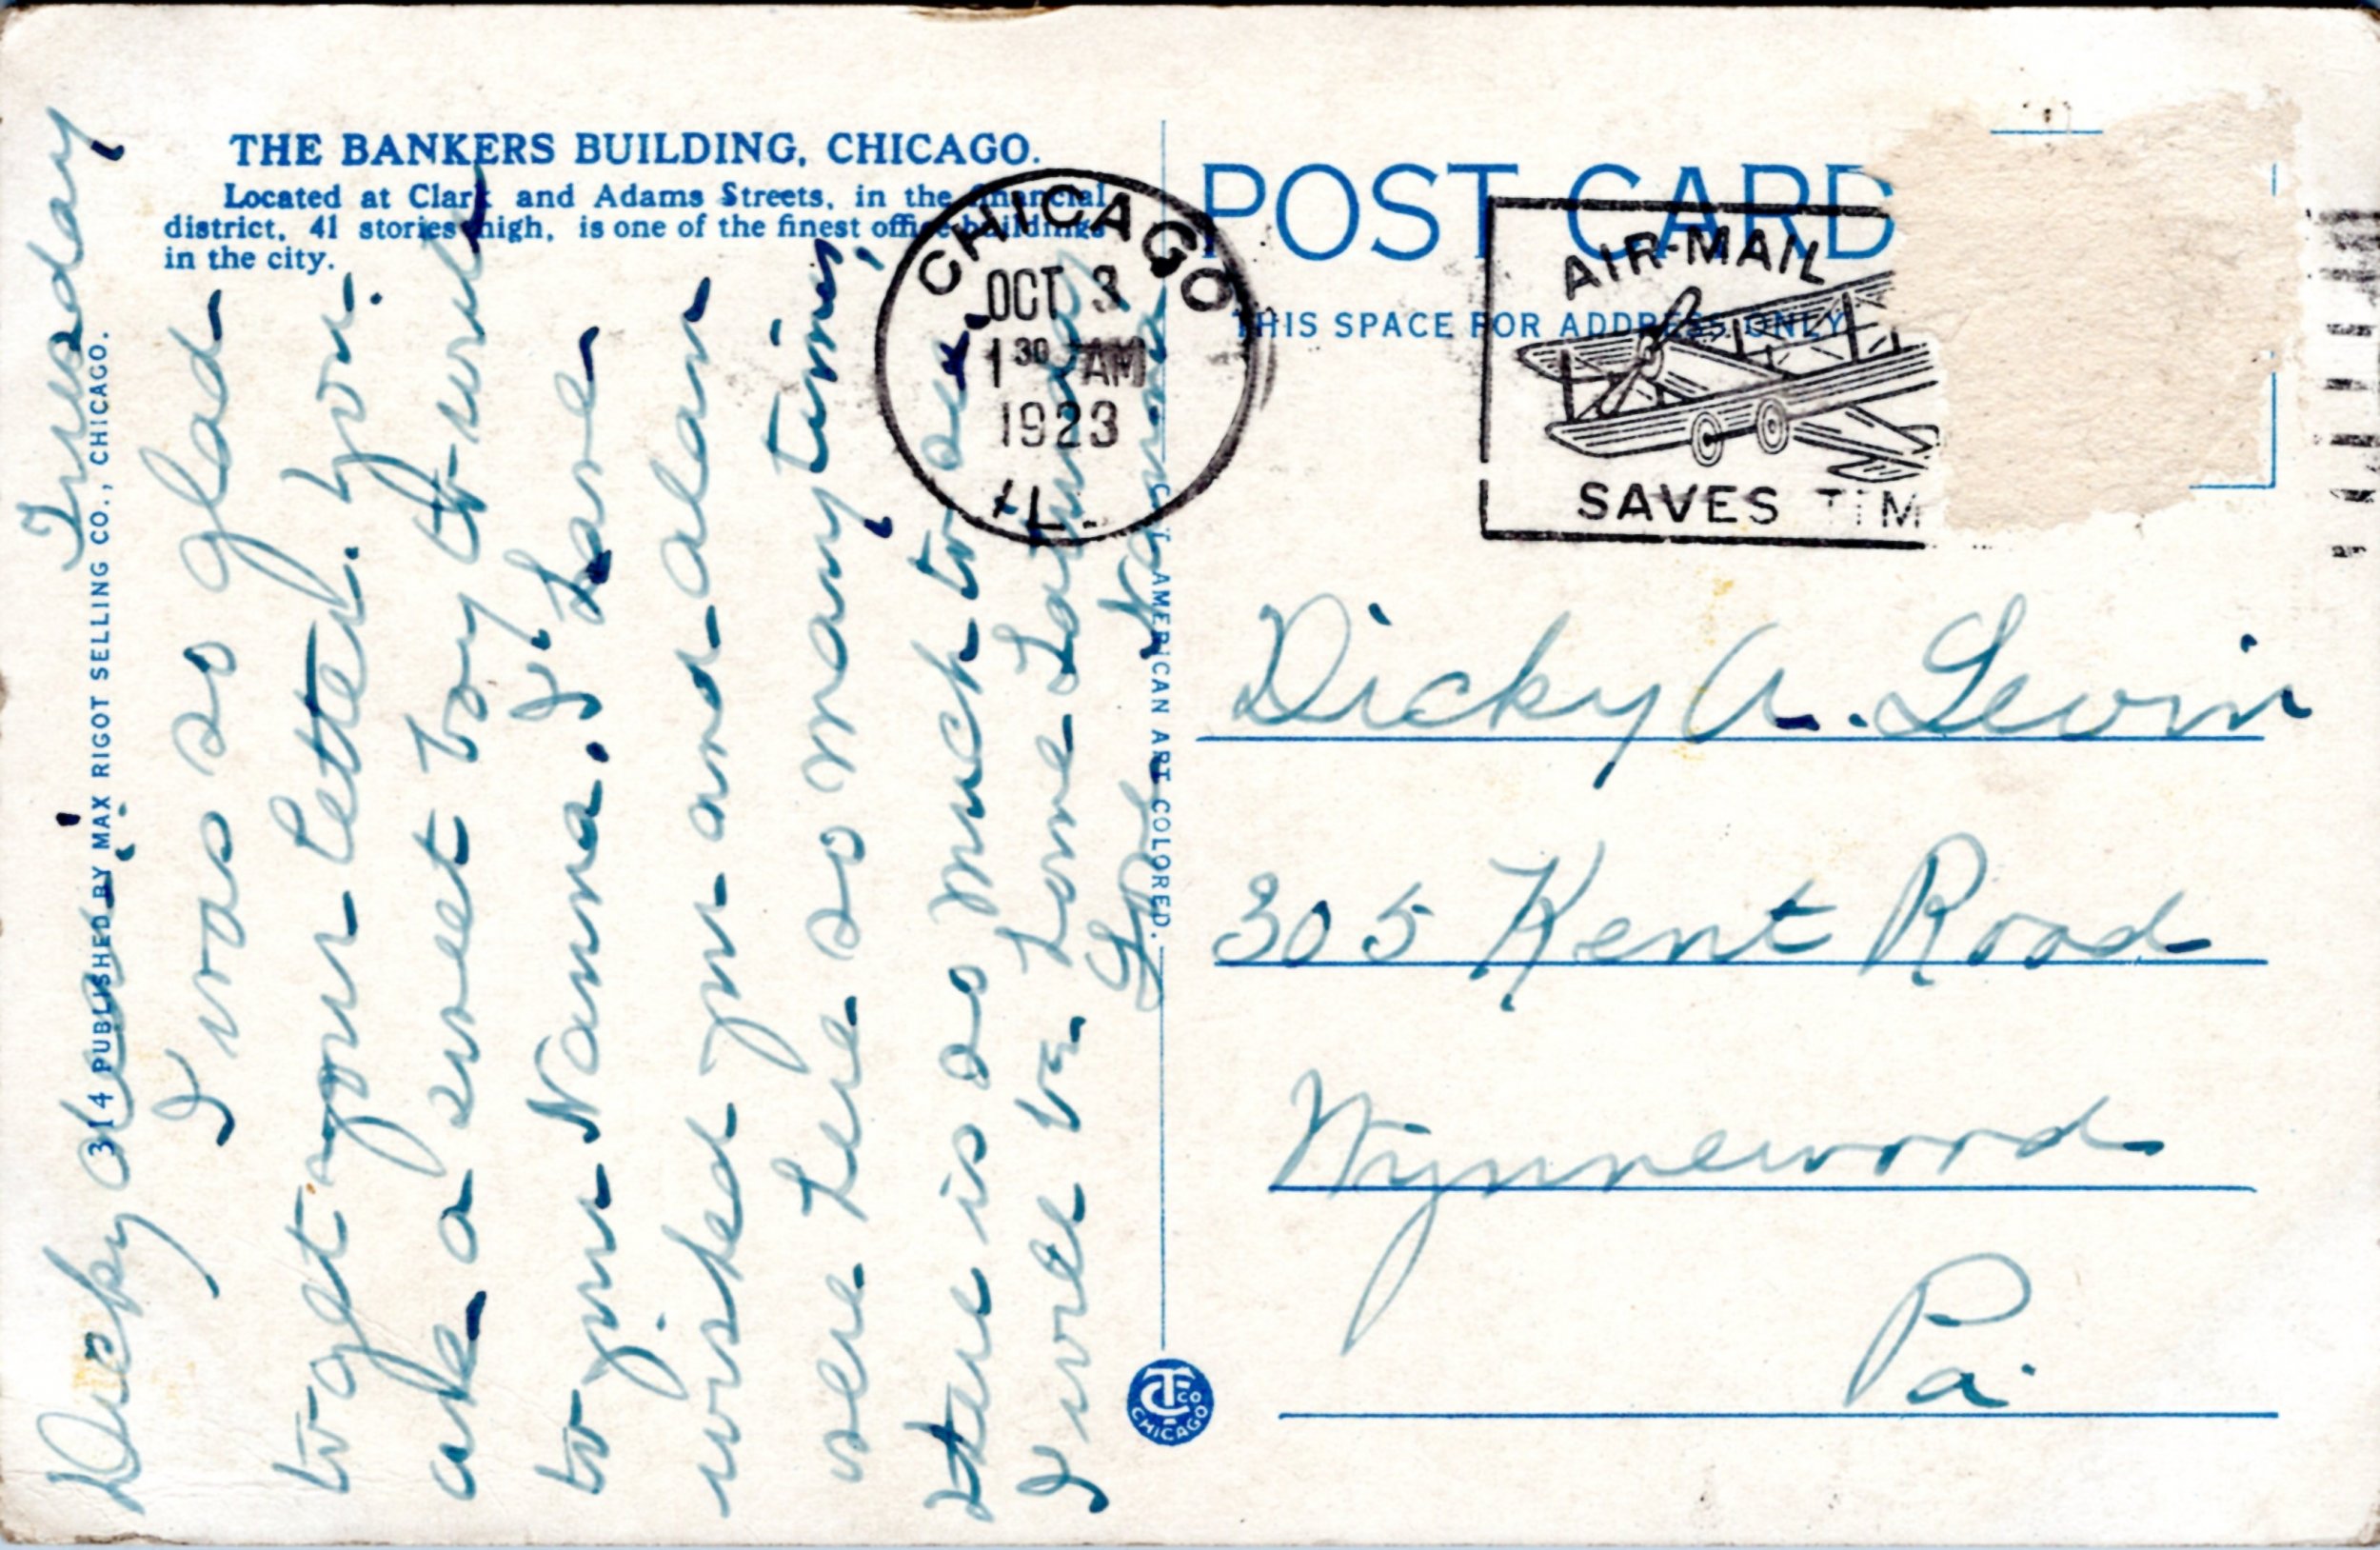 THE BANKERS BUILDING, CHICAGO.
Located at Clark and Adams Streets, in the financial
district, 41 stories high, is one of the finest office buildings
in the city.
314 PUBLISHED BY MAX RIGOT SELLING CO., CHICAGO.
Tuesday
Dicky dear:
I was so glad
to get your letter. You
are a sweet boy to write
to your Nanna. I have
wished you and alan
were here so many times,
there is so much to see.
I will be home Saturday
Love Nanna
C. T. AMERICAN ART COLORED.
C T CO
CHICAGO
POST CARD
THIS SPACE FOR ADDRESS ONLY
CHICAGO
OCT 3
1 30 AM
1923
ILL.
AIR-MAIL
SAVES TIM
Dicky A. Levin
305 Kent Road
Wynnewood
Pa.